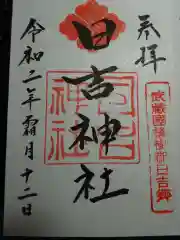 奉拝
日吉神社
令和二年霜月十二日
日吉
神社